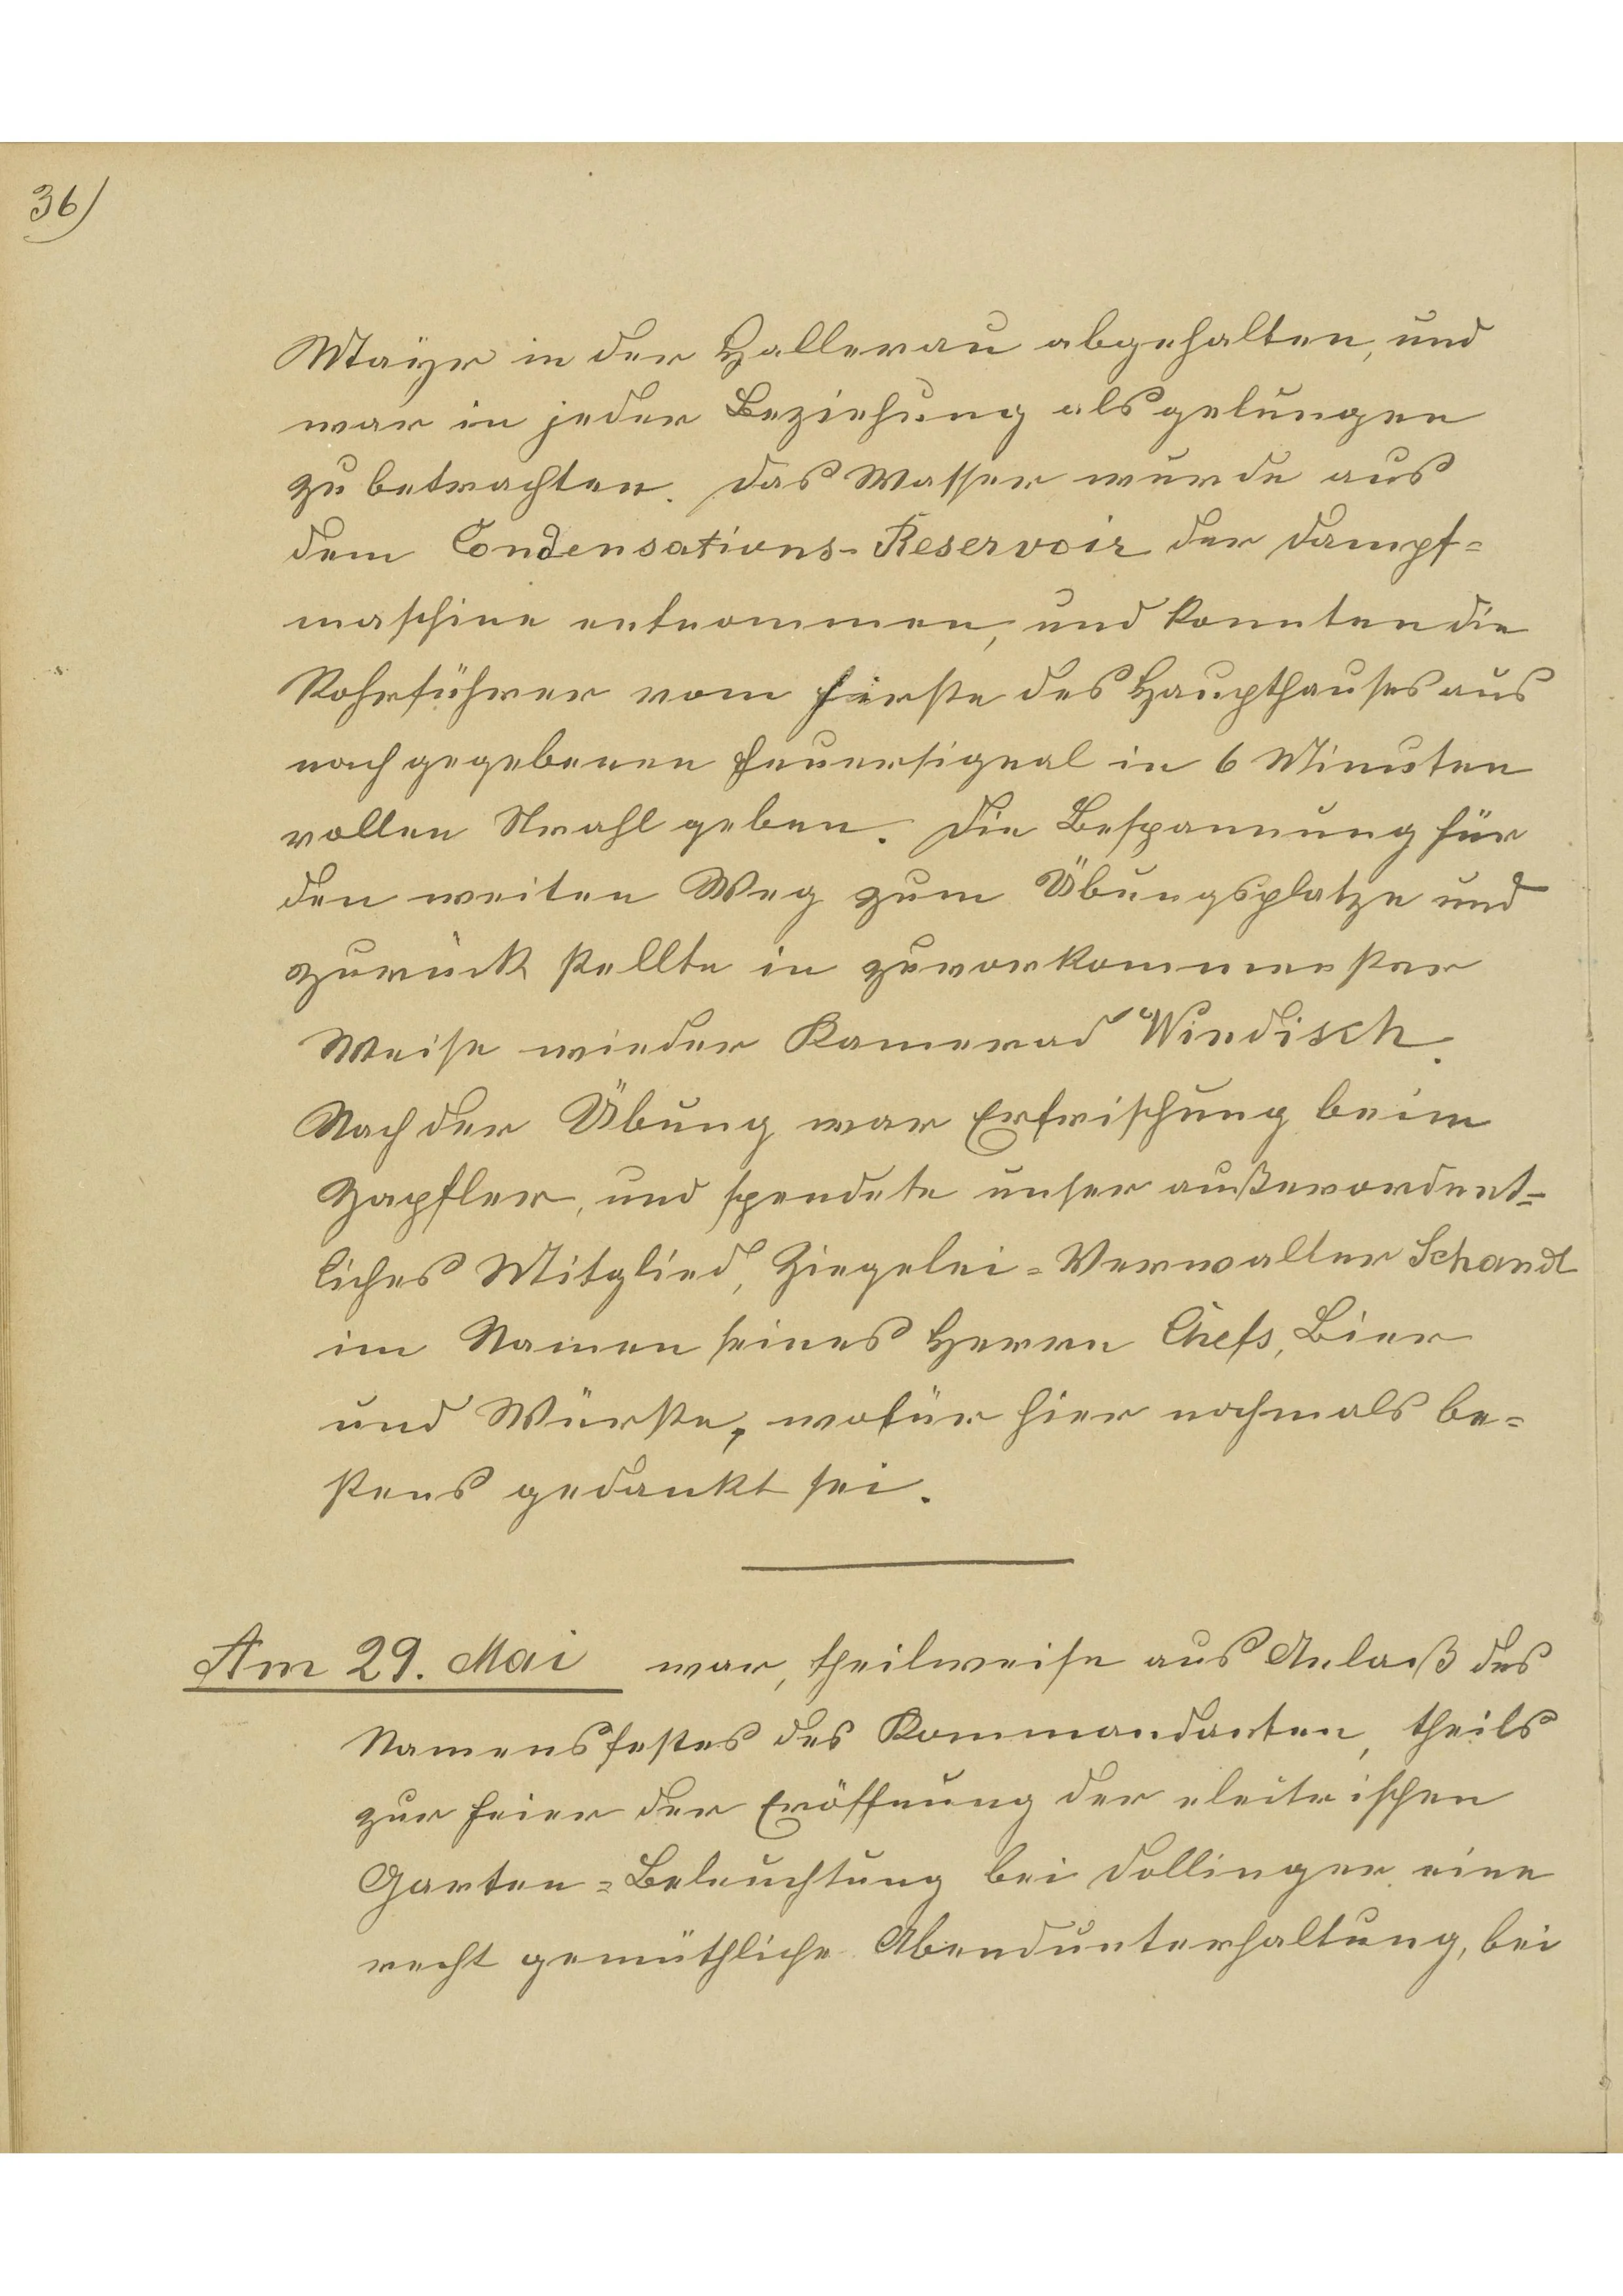 36)
Mayr in der Hallerau abgehalten, und
war in jeder Beziehung als gelungen
zu betrachten. Das Wasser wurde aus
dem Condensations-Reservoir der Dampf=
maschine entnommen, und konnten die
Rohrführer vom Firste des Haupthauses aus
nach gegebenen Feuersignal in 6 Minuten
vollen Strahl geben. Die Bespannung für
den weiten Weg zum Übungsplatze und
zurück stellte in zuvorkommenster
Weise wieder Kamerad Windisch.
Nach der Übung war Erfrischung beim
Zapfler, und spendete unser außerordent=
liches Mitglied, Ziegelei=Verwalter Schandl
im Namen seines Herrn Chefs, Bier
und Würste, wofür hier nochmals be=
stens gedankt sei.
Am 29. Mai war, theilweise aus Anlaß des
Namensfestes des Kommandanten, theils
zur Feier der Eröffnung der electrischen
Garten=Beleuchtung bei Dollinger eine
recht gemüthliche Abendunterhaltung, bei